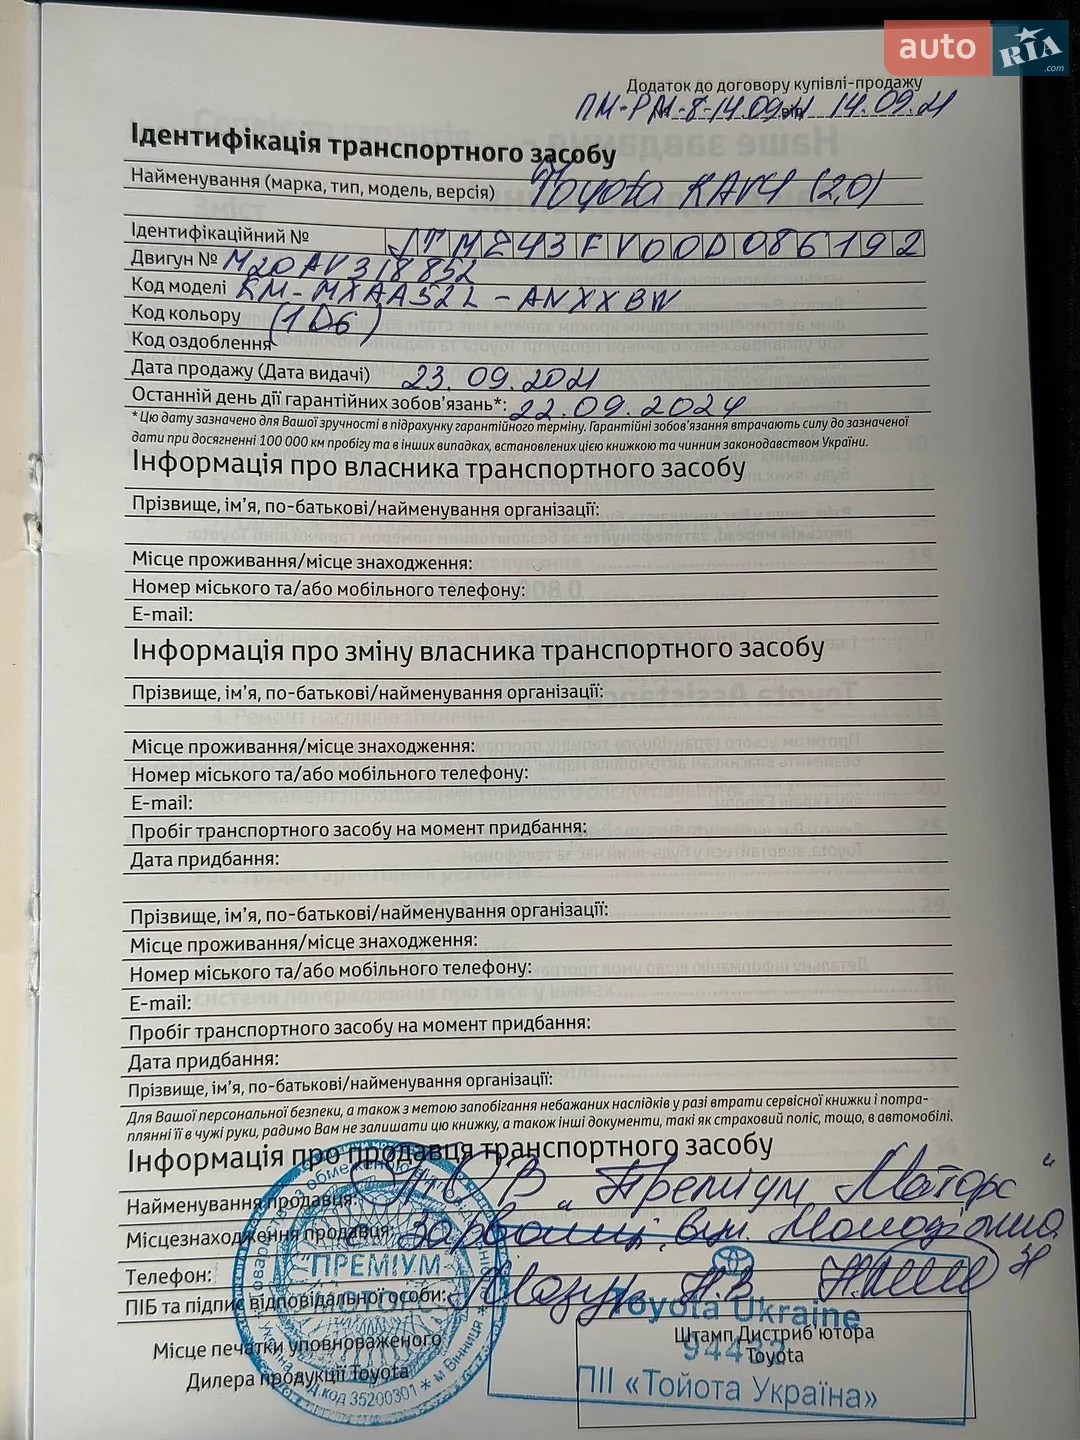 auto RIA .com
Додаток до договору купівлі-продажу
ПМ-РМ-8-14.09.21 від 14.09.21
Ідентифікація транспортного засобу
Найменування (марка, тип, модель, версія) Toyota RAV4 (2,0)
Ідентифікаційний № JTMZ43FV00D086192
Двигун № M20AV318852
Код моделі KM-MXAA52L-ANXXBW
Код кольору (1D6)
Код оздоблення
Дата продажу (Дата видачі) 23.09.2021
Останній день дії гарантійних зобов'язань*: 22.09.2024
* Цю дату зазначено для Вашої зручності в підрахунку гарантійного терміну. Гарантійні зобов'язання втрачають силу до зазначеної
дати при досягненні 100 000 км пробігу та в інших випадках, встановлених цією книжкою та чинним законодавством України.
Інформація про власника транспортного засобу
Прізвище, ім'я, по-батькові/найменування організації:
Місце проживання/місце знаходження:
Номер міського та/або мобільного телефону:
E-mail:
Інформація про зміну власника транспортного засобу
Прізвище, ім'я, по-батькові/найменування організації:
Місце проживання/місце знаходження:
Номер міського та/або мобільного телефону:
E-mail:
Пробіг транспортного засобу на момент придбання:
Дата придбання:
Прізвище, ім'я, по-батькові/найменування організації:
Місце проживання/місце знаходження:
Номер міського та/або мобільного телефону:
E-mail:
Пробіг транспортного засобу на момент придбання:
Дата придбання:
Прізвище, ім'я, по-батькові/найменування організації:
Для Вашої персональної безпеки, а також з метою запобігання небажаних наслідків у разі втрати сервісної книжки і потра-
плянні її в чужі руки, радимо Вам не залишати цю книжку, а також інші документи, такі як страховий поліс, тощо, в автомобілі.
Інформація про продавця транспортного засобу
Найменування продавця: ТОВ "Преміум Моторс"
Місцезнаходження продавця: с. Зарванці, вул. Молодіжна
Телефон:
ПІБ та підпис відповідальної особи:
Місце печатки уповноваженого
Дилера продукції Toyota
ПРЕМІУМ
МОТОРС
Україна * код 35200301 * м Вінниця *
Toyota Ukraine
94432
ПІІ «Тойота Україна»
Штамп Дистриб'ютора
Toyota